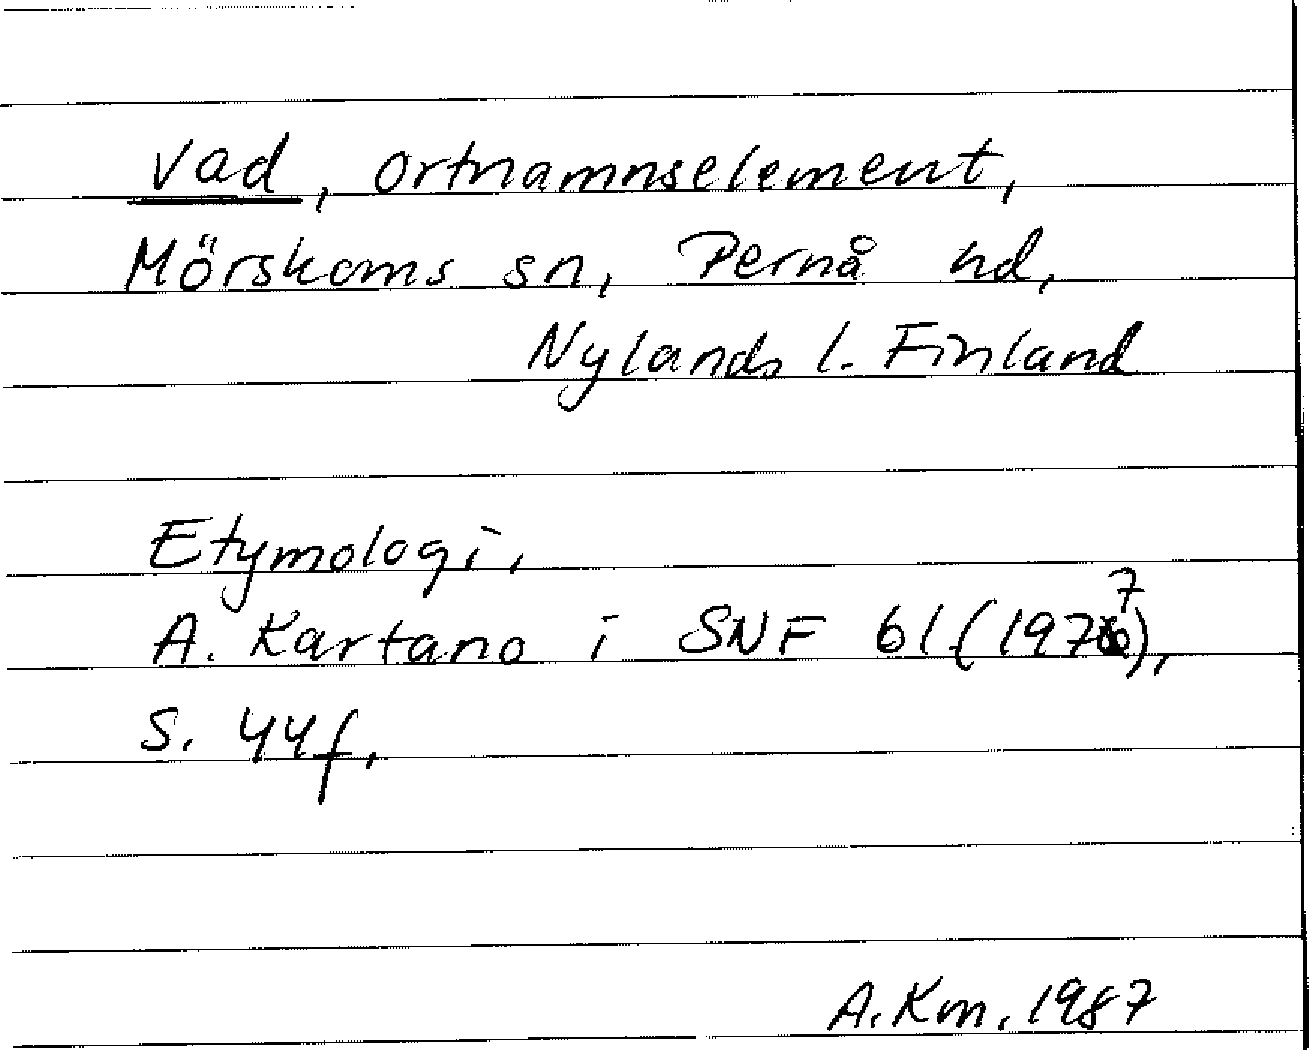 vad, ortnamnselement,
Mörskoms sn, Pernå hd,
Nylands l. Finland
Etymologi,
A. Kartano i SNF 61 (1977),
s. 44 f,
A. Km. 1987